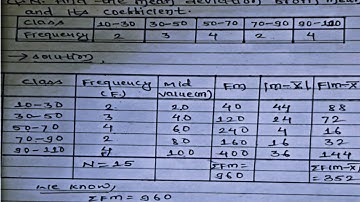 Q.N. Find the mean deviation from mean
and its coefficient.
Class 10-30 30-50 50-70 70-90 90-110
Frequency 2 3 4 2 4
→ solution,
Class Frequency (F) Mid value(m) Fm |m-X̄| F|m-X̄|
10-30 2 20 40 44 88
30-50 3 40 120 24 72
50-70 4 60 240 4 16
70-90 2 80 160 16 32
90-110 4 100 400 36 144
N=15 ΣFm= 960 ΣF|m-X̄| =352
We know,
ΣFm = 960